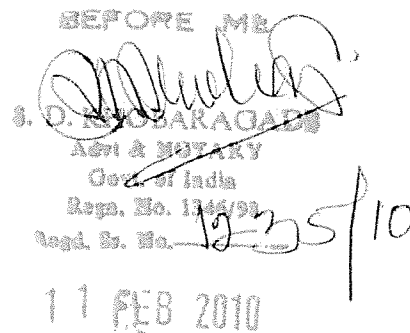 BEFORE ME
S. D. KHOBARAGADE
Advt & NOTARY
Govt. of India
Regn. No.
Regd. Sr. No. 1235/10
11 FEB 2010